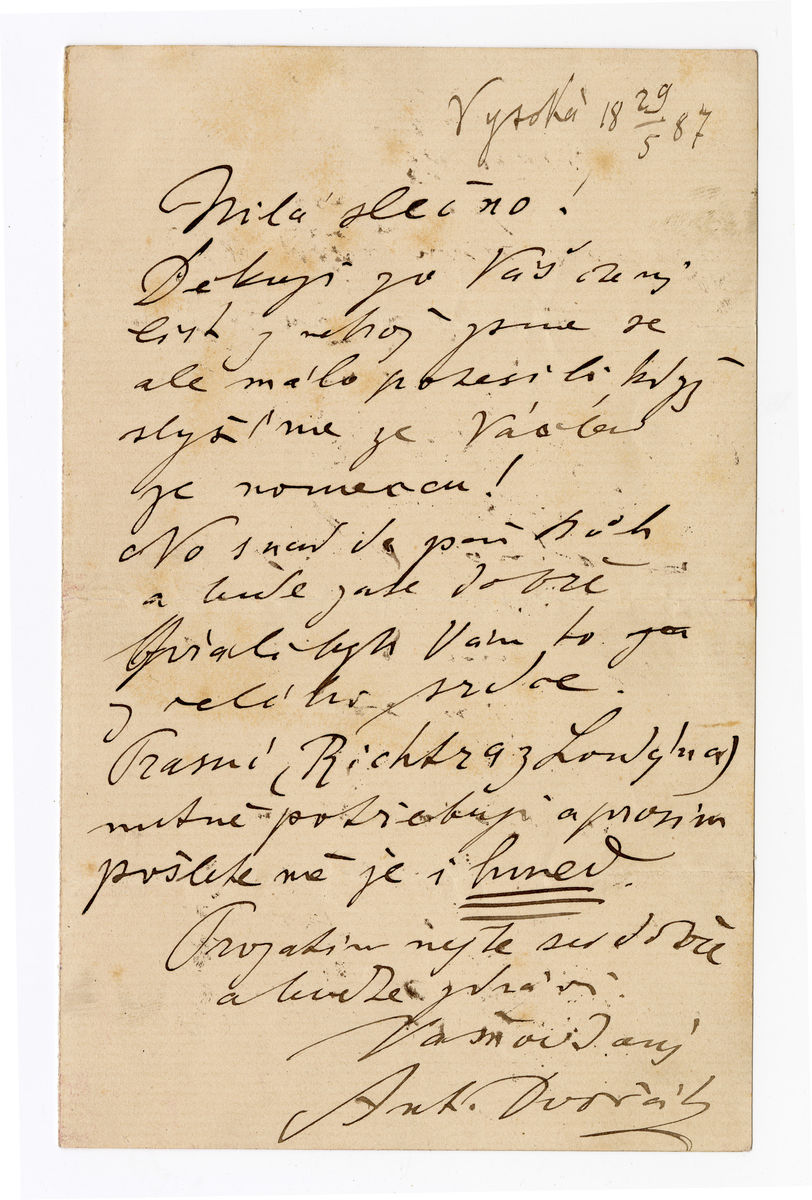 Vysoká 18 29/5 87
Milá slečno!
Děkuji za Váš cený
list z něhož jsme se
ale málo potěšili když
slyšíme že Václav
je nemocen!
No snad dá pán Bůh
a bude zase dobře
Přáli bych Vám to
z celého srdce.
(Richtra z Londýna)
nutně potřebuji a prosím
pošlete mě je i hned.
Prozatím mějte se dobře
a buďte zdrávi.
Váš oddaný
Ant. Dvořák